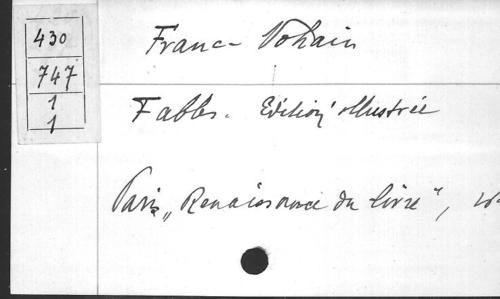 430
747
1
1
Franc-Nohain
Fables. Edition illustrée
Paris, „Renaissance du livre",